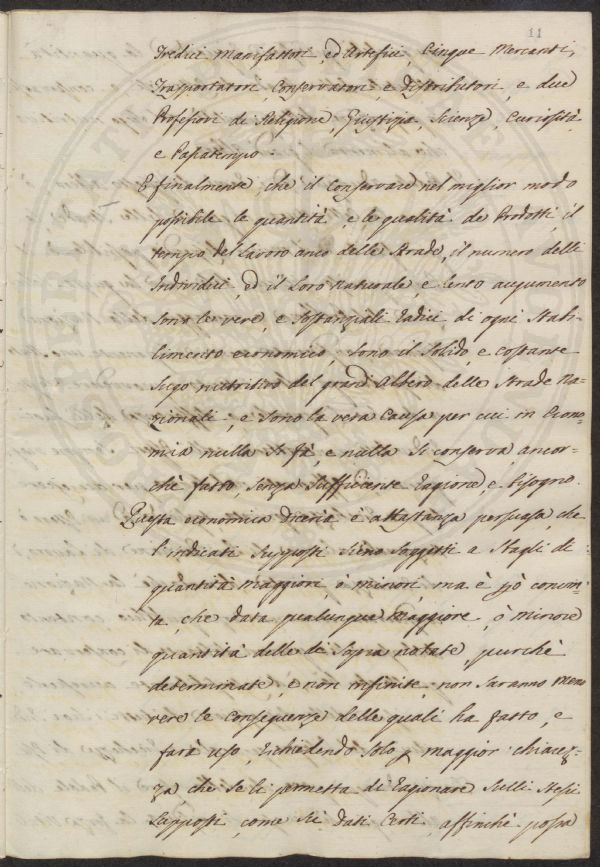 11
Tredici Manifattori, ed Artefici, Cinque Mercanti,
Trasportatori, Conservatori, e Distributori, e due
Professori di Religione, Giustizia, Scienze, Curiosità,
e Passatempo.
E finalmente, chè il Conservare nel miglior modo
possibile le quantità, e le qualità de Prodotti, il
tempo del lavoro anco delle Strade, il numero delli
Individui, ed il Loro naturale, e lento augumento
sono le vere, e sostanziali radici di ogni Stabi-
limento economico, sono il Solido, e costante
Sugo nutritivo del grand'Albero delle Strade Na-
zionali, e sono la vera Causa per cui in Econo-
mia nulla si fà, e nulla si conserva, ancor-
chè fatto, senza sufficiente ragione, e bisogno.
Questa economica è abbastanza persuasa, che
l'indicati supposti sieno soggetti a sbagli di
quantità maggiori, ò minori, ma è pò convin-
ta, che data qualunque maggiore, ò minore
quantità delle di sopra notate, purchè
determinate, e non infinite, non saranno men
vere le conseguenze delle quali ha fatto, e
farà uso, richiedendo solo p maggior chiarez-
za che se li permetta di ragionare sulli stessi
supposti, come sù dati Certi, affinchè possa